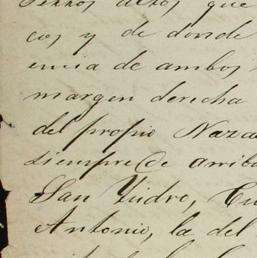 altos que
cos y de donde
encia de ambos
margen derecha
del propio Naza
siempre (de arriba
San Ysidro, Cu
Antonio, la del